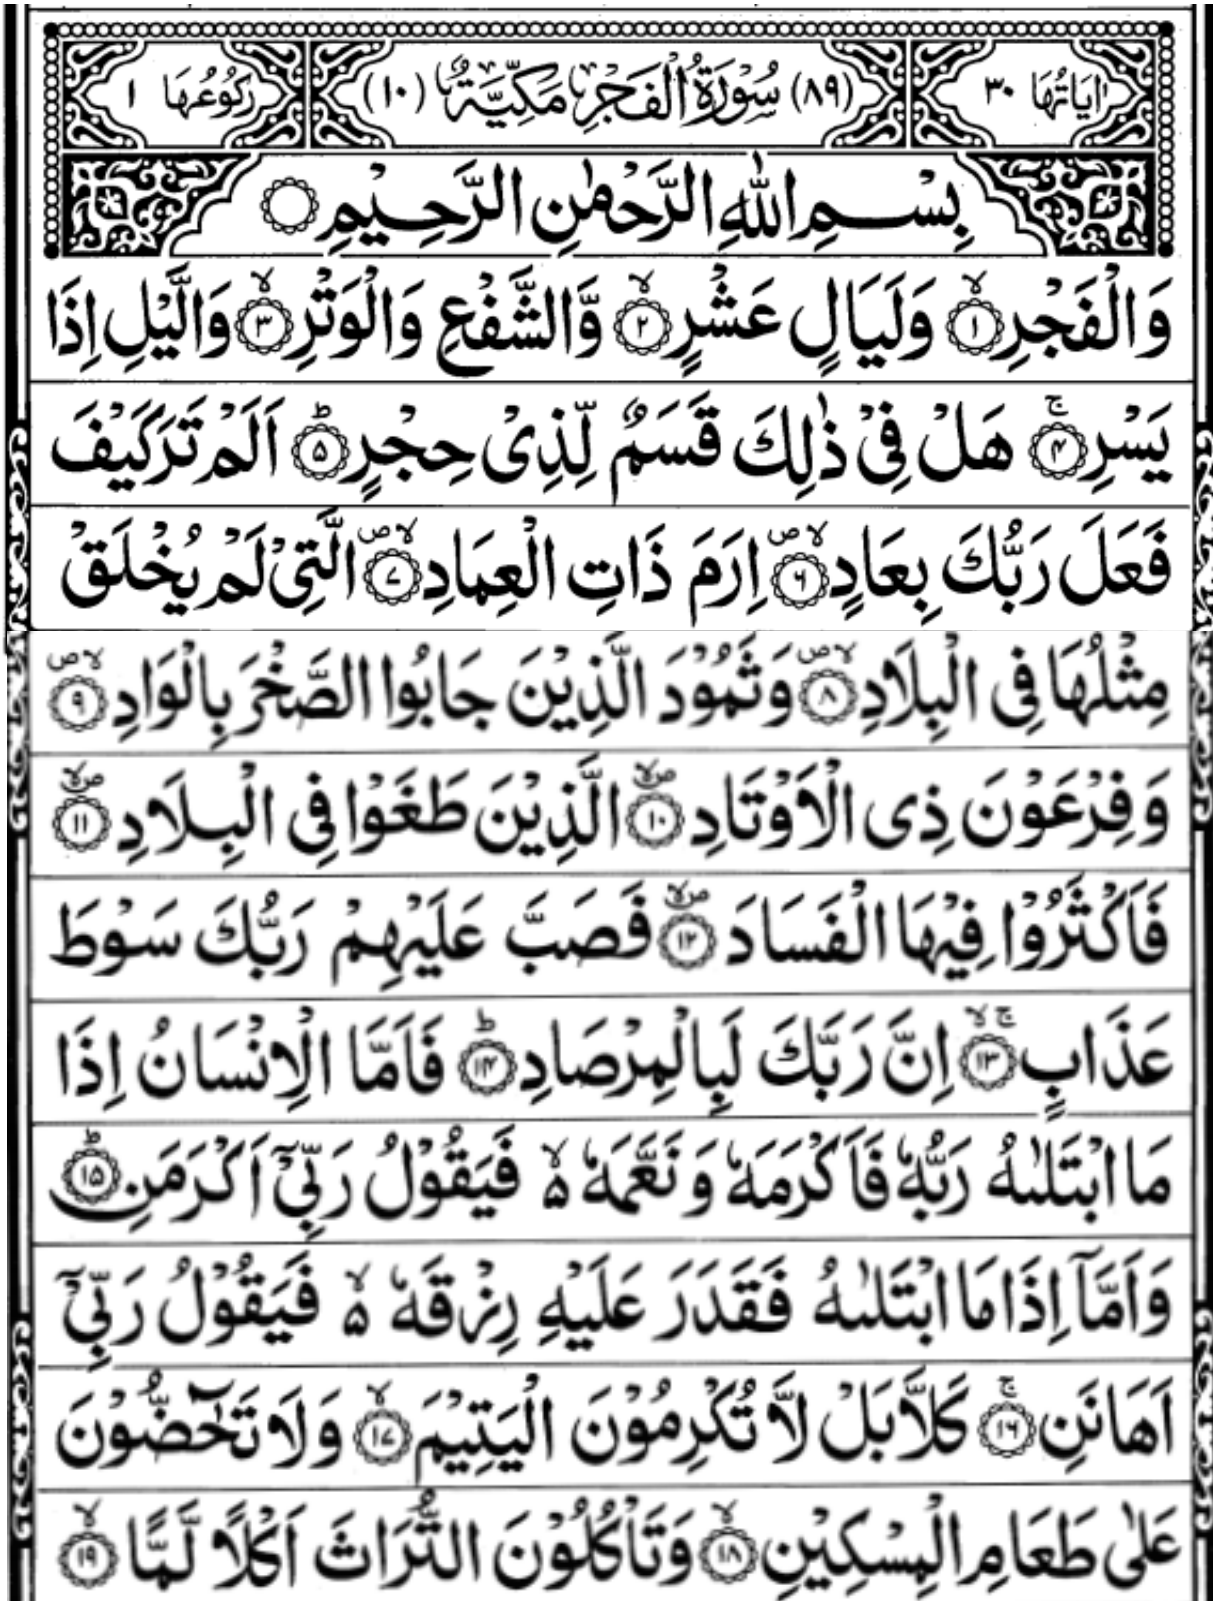 اٰیَاتُهَا ٣٠ (٨٩) سُوْرَةُ الْفَجْرِ مَكِّیَّةٌ (١٠) رُكُوْعُهَا ١
بِسْمِ اللّٰهِ الرَّحْمٰنِ الرَّحِیْمِ
وَالْفَجْرِ ﴿١﴾ۙ وَلَیَالٍ عَشْرٍ ﴿٢﴾ۙ وَّالشَّفْعِ وَالْوَتْرِ ﴿٣﴾ۙ وَالَّیْلِ اِذَا
یَسْرِ ﴿۴﴾ۚ هَلْ فِیْ ذٰلِكَ قَسَمٌ لِّذِیْ حِجْرٍ ﴿۵﴾ؕ اَلَمْ تَرَ كَیْفَ
فَعَلَ رَبُّكَ بِعَادٍ ﴿۶﴾۪ۙ اِرَمَ ذَاتِ الْعِمَادِ ﴿۷﴾۪ۙ الَّتِیْ لَمْ یُخْلَقْ
مِثْلُهَا فِی الْبِلَادِ ﴿۸﴾۪ۙ وَثَمُوْدَ الَّذِیْنَ جَابُوا الصَّخْرَ بِالْوَادِ ﴿۹﴾۪ۙ
وَفِرْعَوْنَ ذِی الْاَوْتَادِ ﴿۱۰﴾۪ۙ الَّذِیْنَ طَغَوْا فِی الْبِلَادِ ﴿۱۱﴾۪ۙ
فَاَكْثَرُوْا فِیْهَا الْفَسَادَ ﴿۱۲﴾۪ۙ فَصَبَّ عَلَیْهِمْ رَبُّكَ سَوْطَ
عَذَابٍ ﴿۱۳﴾ۚۙ اِنَّ رَبَّكَ لَبِالْمِرْصَادِ ﴿۱۴﴾ؕ فَاَمَّا الْاِنْسَانُ اِذَا
مَا ابْتَلٰىهُ رَبُّهٗ فَاَكْرَمَهٗ وَنَعَّمَهٗ ۙ۬ فَیَقُوْلُ رَبِّیْۤ اَكْرَمَنِ ﴿۱۵﴾ؕ
وَاَمَّاۤ اِذَا مَا ابْتَلٰىهُ فَقَدَرَ عَلَیْهِ رِزْقَهٗ ۙ۬ فَیَقُوْلُ رَبِّیْۤ
اَهَانَنِ ﴿۱۶﴾ۚ كَلَّا بَلْ لَّا تُكْرِمُوْنَ الْیَتِیْمَ ﴿۱۷﴾ۙ وَلَا تَحٰٓضُّوْنَ
عَلٰی طَعَامِ الْمِسْكِیْنِ ﴿۱۸﴾ۙ وَتَاْكُلُوْنَ التُّرَاثَ اَكْلًا لَّمًّا ﴿۱۹﴾ۙ